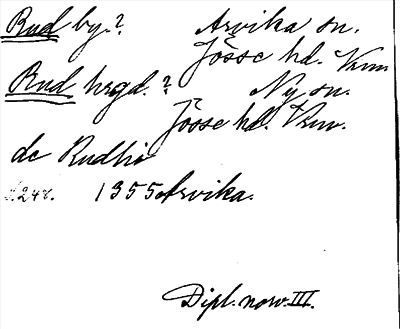 Rud by.? Arvika sn.
Jösse hd. Vrm
Rud hrgd.? Ny sn.
Jösse hd. Vrm.
de Rudhio
s. 248. 1355 Arvika.
Dipl. norv. III.